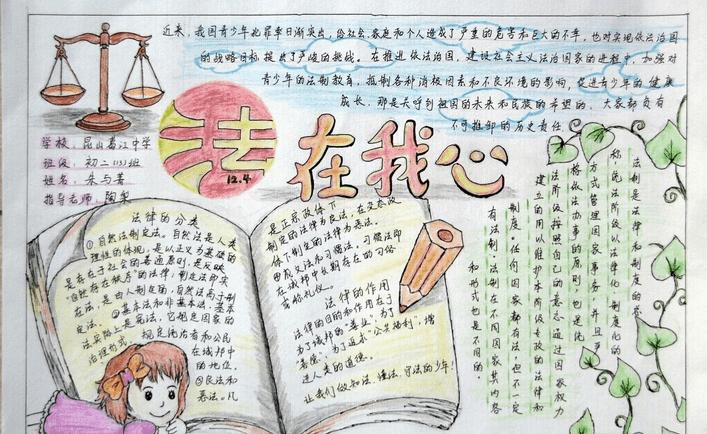 近来，我国青少年犯罪率日渐突出，给社会、家庭和个人造成了严重的危害和巨大的不幸，也对实现依法治国
的战略目标提出了严峻的挑战。在推进依法治国，建设社会主义法治国家的进程中，加强对
青少年的法制教育，抵制各种消极因素和不良环境的影响，促进青少年的健康
成长，那是关乎到祖国的未来和民族的希望的，大家都负有
不可推卸的历史责任。
学校：昆山葛江中学
班级：初二（13）班
姓名：朱与菁
指导老师：陶
法在我心
12.4
法律的分类
①自然法制定法。自然法是人类
理性的体现，是以正义为基础的
是存在于社会的普通原则，是反映
"自然存在秩序"的法律；制定法即实
在法，是由人制定的，自然法高于制
定法。②基本法和非基本法，基本
法实际上是宪法，它规定国家的
治理形式，规定统治者和公民
在城邦中
的地位。
③良法和
恶法。凡
是正宗政体下
制定的法律为良法，在变态政
体下制定的法律为恶法。
④成文法和习惯法，习惯法即
在城邦中长期存在的习俗
或俗礼仪。
法律的作用
法律的目的和作用在于
为了城邦的"善业"，为了
"善德"，为了追求"公共福利"，增
进人类的道德。
让我们做知法、懂法、守法的少年！
法制是法律和制度的总
称。统治阶级以法律化、制度化的
方式管理国家事务，并且严
将依法办事的原则，也是统
治阶级按照自己的意志通过国家权力
建立的用以维护本阶级专政的法律和
制度。任何国家都有法，但不一定
有法制。法制在不同国家其内容
和形式也是不同的。